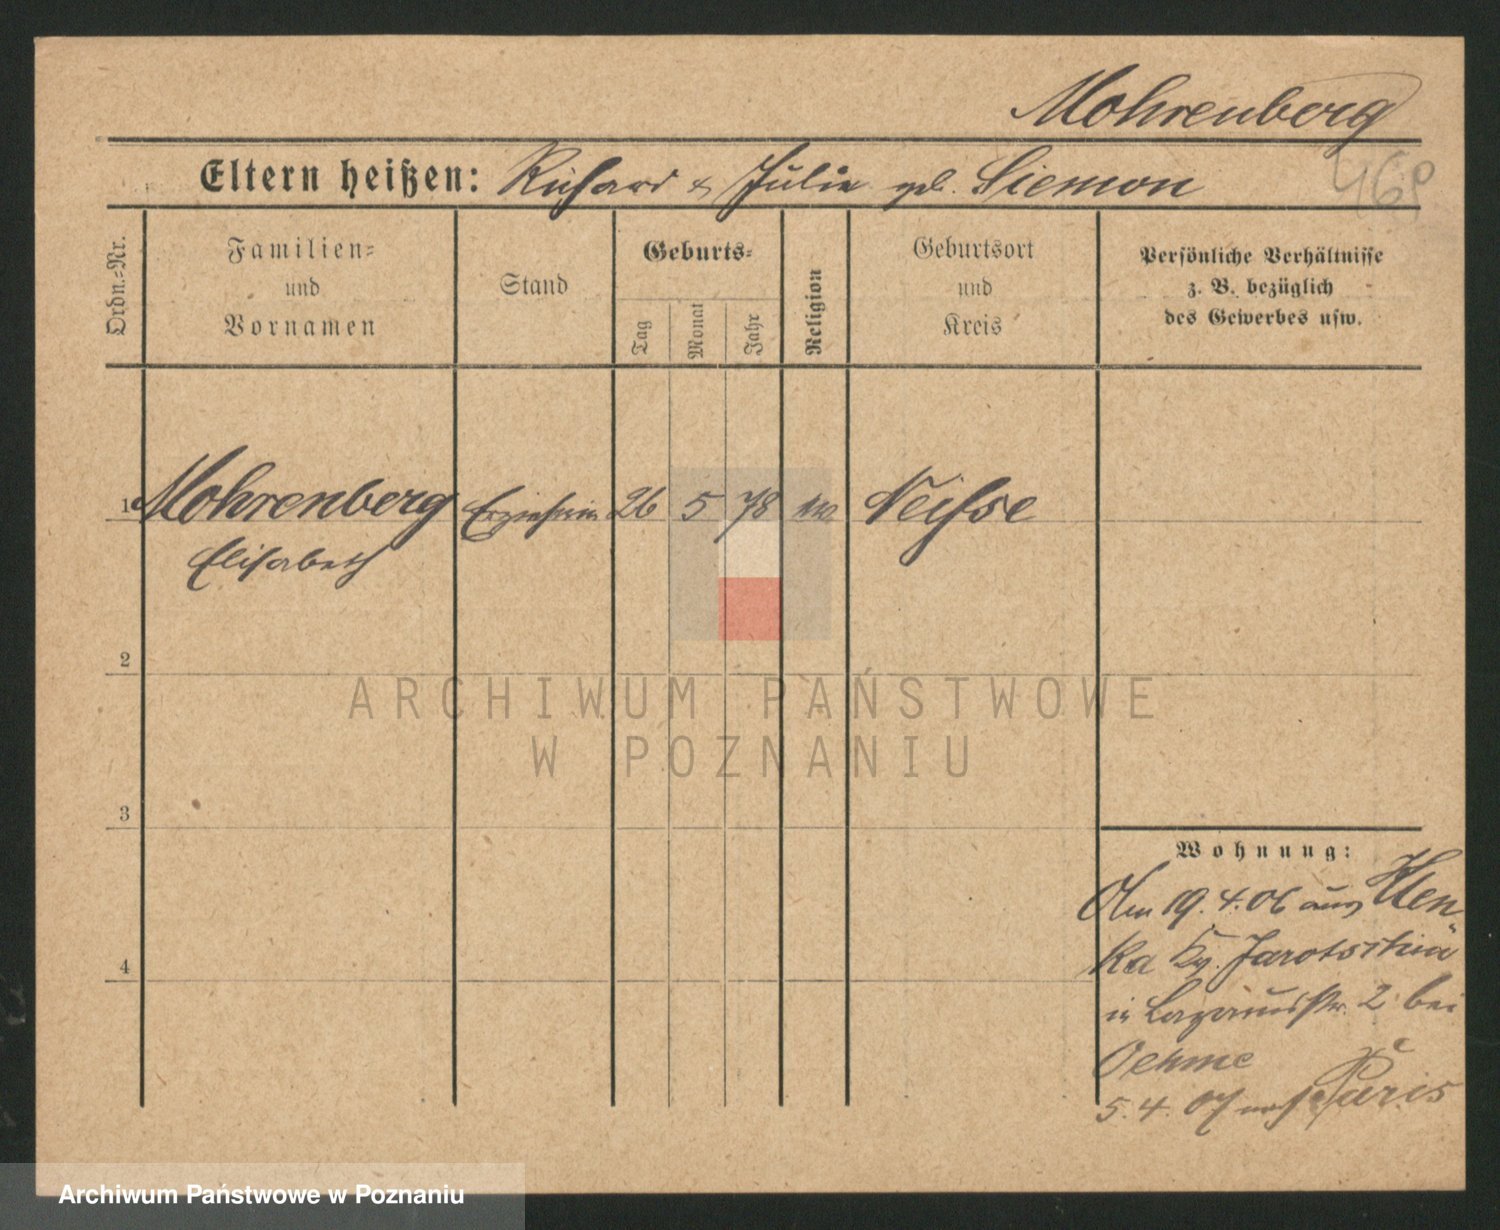 Mohrenberg
Eltern heißen: Richard & Julie geb. Siemon
Ordn.-Nr.
Familien-
und
Vornamen
Stand
Geburts-
Tag
Monat
Jahr
Religion
Geburtsort
und
Kreis
Persönliche Verhältnisse
z. B. bezüglich
des Gewerbes usw.
1 Mohrenberg Erzieherin 26 5 78 Neisse
Elisabeth
2
ARCHIWUM PAŃSTWOWE
W POZNANIU
3
4
Wohnung:
Am 19.4.06 aus Hlen
ka Jarotschin
in Lazarusstr. 2 bei
Oehme
5.4.07 nach Paris
Archiwum Państwowe w Poznaniu